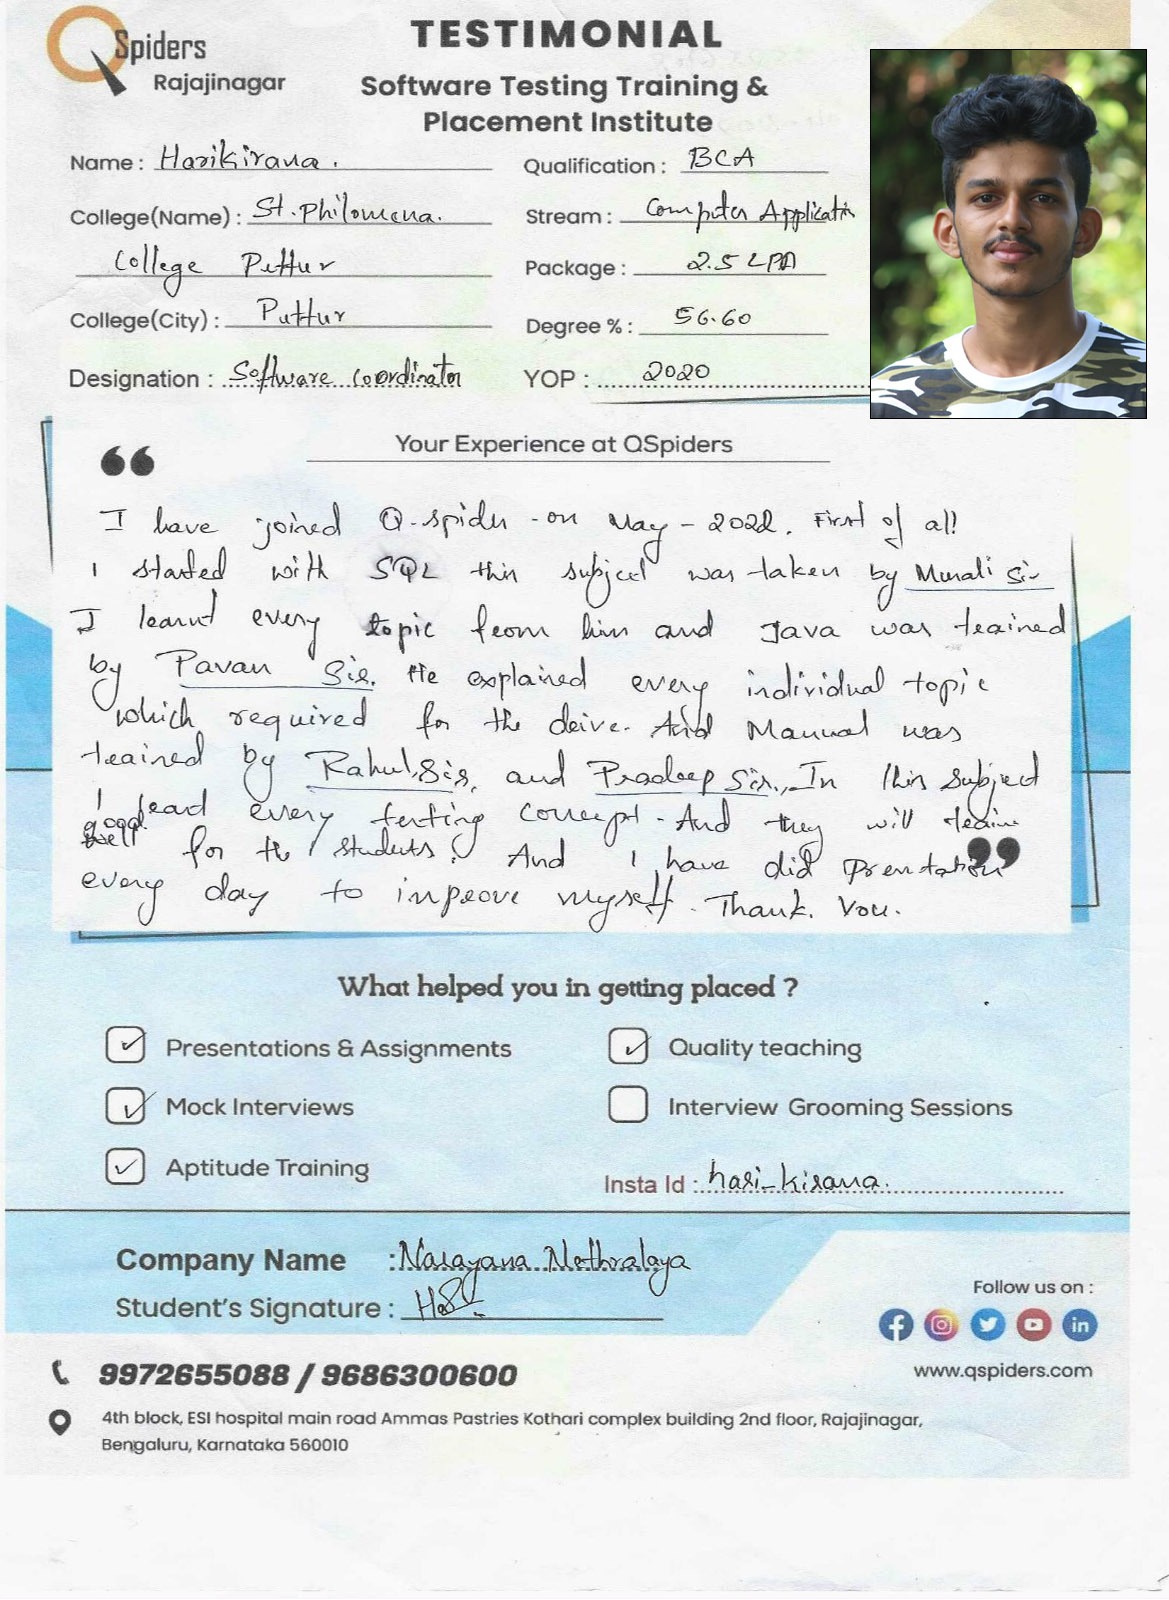 QSpiders
Rajajinagar
TESTIMONIAL
Software Testing Training &
Placement Institute
Name : Harikirana.
Qualification : BCA
College(Name) : St. Philomena.
Stream : Computer Application
College Puttur
Package : 2.5 LPA
College(City) : Puttur
Degree % : 56.60
Designation : Software Coordinator
YOP : 2020
Your Experience at QSpiders
I have joined Q-spider - on May - 2022. First of all
I started with SQL this subject was taken by Murali Sir
I learnt every topic from him and Java was trained
by Pavan Sir. He explained every individual topic
which required for the drive. And Manual was
trained by Rahul Sir, and Pradeep Sir., In this subject
I every testing concept. And they will train
good for the students. And I have did
every day to inprove myself. Thank You.
What helped you in getting placed ?
Presentations & Assignments
Quality teaching
Mock Interviews
Interview Grooming Sessions
Aptitude Training
Insta Id : hari_kirana.
Company Name : Narayana Nethralaya
Student's Signature :
Follow us on :
9972655088 / 9686300600
www.qspiders.com
4th block, ESI hospital main road Ammas Pastries Kothari complex building 2nd floor, Rajajinagar,
Bengaluru, Karnataka 560010